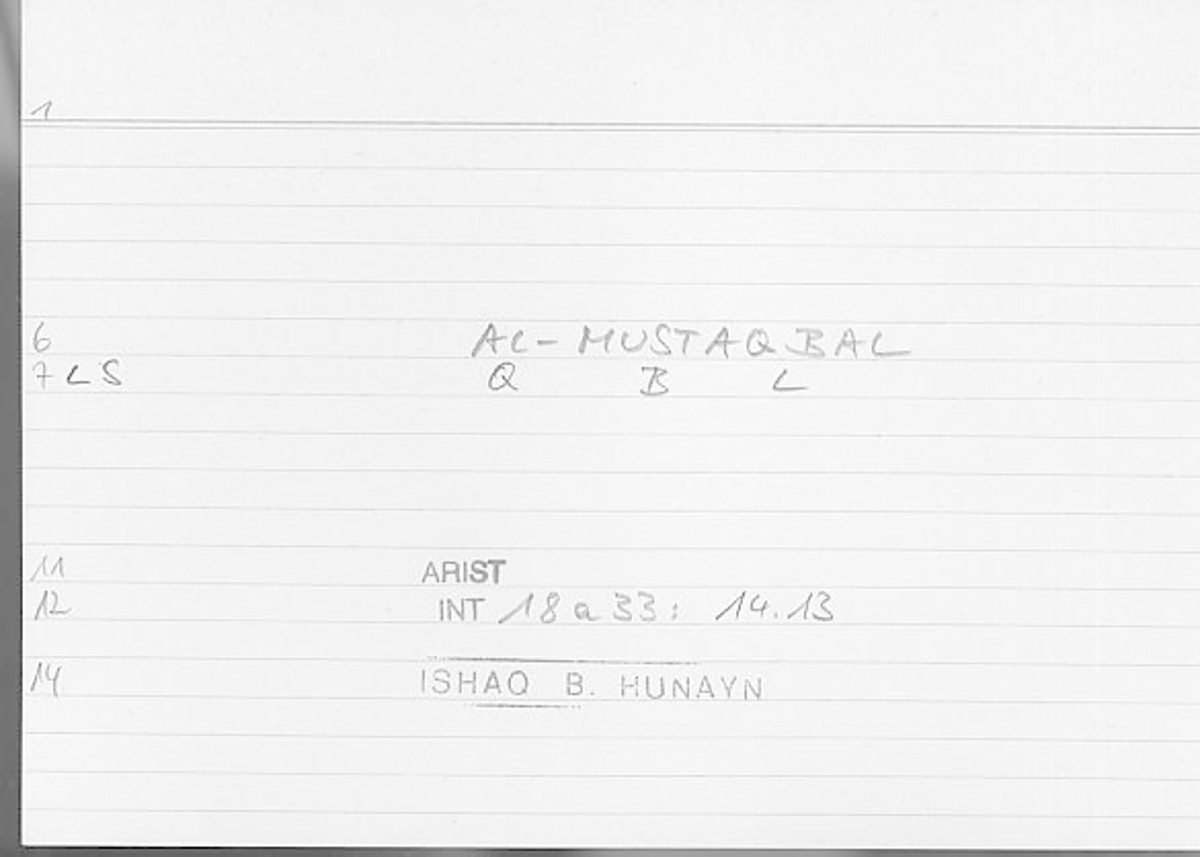 1
6 AL-MUSTAQBAL
7 LS Q B L
11 ARIST
12 INT 18a33: 14.13
14 ISHAQ B. HUNAYN